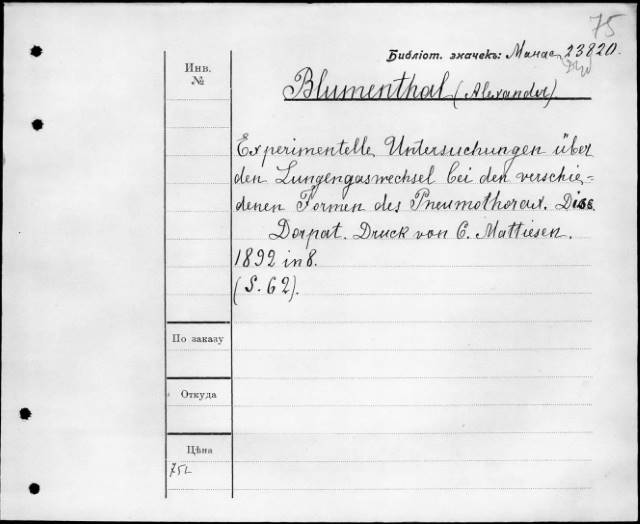 75
Инв.
№
Библіот. значекъ: Минас. 23820.
Blumenthal (Alexander)
Experimentelle Untersuchungen über
den Lungengaswechsel bei den verschie-
denen Formen des Pneumothorax. Diss.
Dorpat. Druck von C. Mattiesen.
1892 in 8.
(S. 62).
По заказу
Откуда
Цѣна